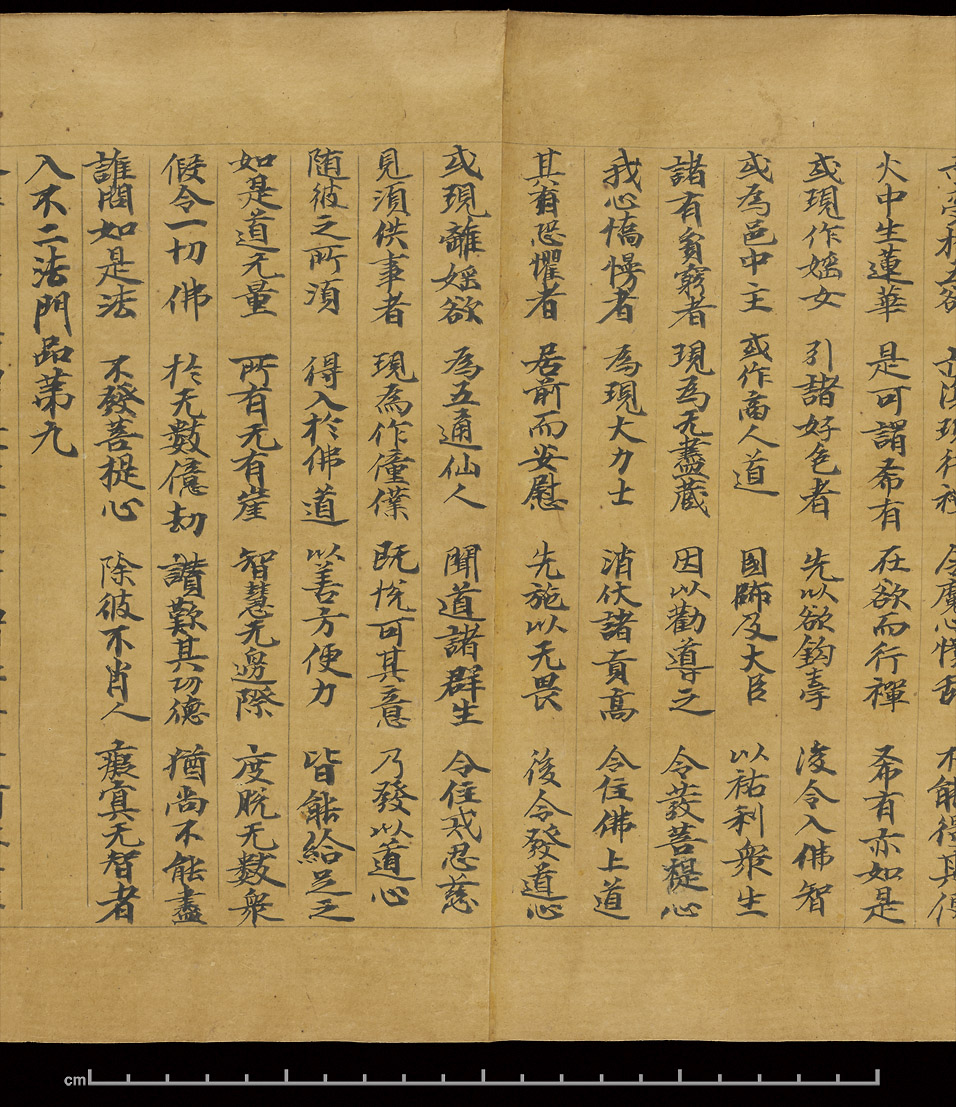 受於五欲 亦復現行禪 令魔心憒亂 不能得其便
火中生蓮華 是可謂希有 在欲而行禪 希有亦如是
或現作婬女 引諸好色者 先以欲鈎牽 後令入佛智
或為邑中主 或作商人道 國師及大臣 以祐利眾生
諸有貧窮者 現為无盡藏 因以勸導之 令發菩提心
我心憍慢者 為現大力士 消伏諸貢高 令住佛上道
其有恐懼者 居前而安慰 先施以无畏 後令發道心
或現離婬欲 為五通仙人 開道諸群生 令住戒忍慈
見須供事者 現為作僮僕 既悅可其意 乃發以道心
随彼之所須 得入於佛道 以善方便力 皆能給足之
如是道无量 所有无有崖 智慧无邊際 度脫无數眾
假令一切佛 於无數億劫 讚歎其功德 猶尚不能盡
誰聞如是法 不發菩提心 除彼不肖人 癡冥无智者
入不二法門品第九